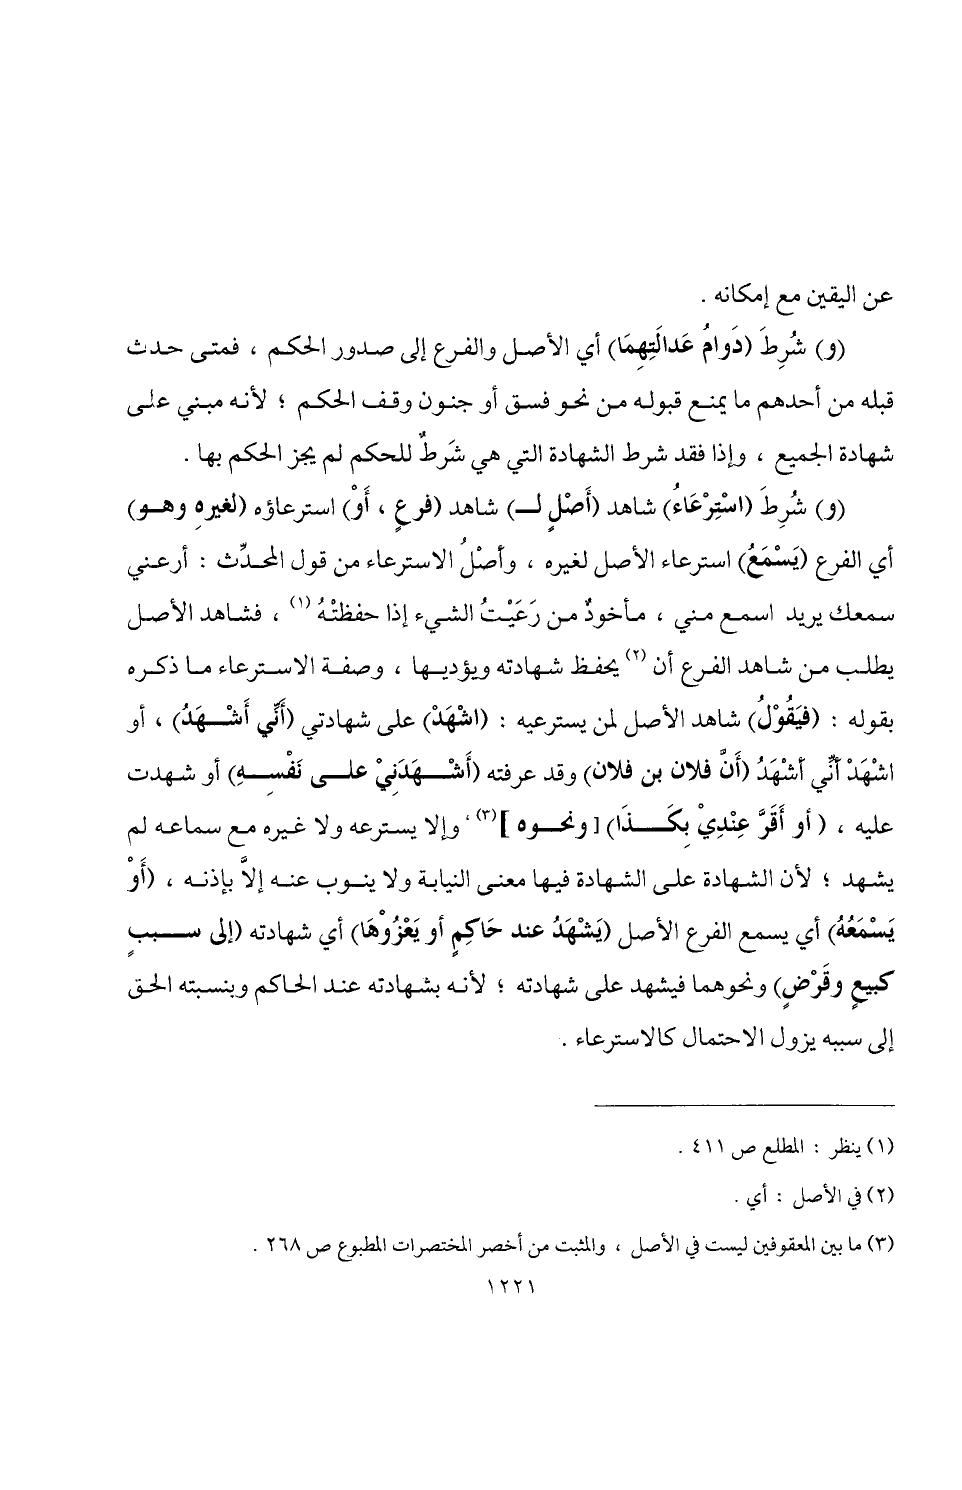 عن اليقين مع إمكانه .
(و) شُرِطَ (دَوامُ عَدالَتِهِمَا) أي الأصل والفرع إلى صدور الحكم ، فمتى حدث
قبله من أحدهم ما يمنع قبوله من نحو فسق أو جنون وقف الحكم ؛ لأنه مبني على
شهادة الجميع ، وإذا فقد شرط الشهادة التي هي شَرطٌ للحكم لم يجز الحكم بها .
(و) شُرِطَ (اسْتِرْعَاءُ) شاهد (أَصْلٍ لـ) شاهد (فرعٍ ، أَوْ) استرعاؤه (لغيرهِ وهو)
أي الفرع (يَسْمَعُ) استرعاء الأصل لغيره ، وأصْلُ الاسترعاء من قول المحدِّث : أرعني
سمعك يريد اسمع مني ، مأخوذٌ من رَعَيْتُ الشيء إذا حفظتْهُ (١) ، فشاهد الأصل
يطلب من شاهد الفرع أن (٢) يحفظ شهادته ويؤديها ، وصفة الاسترعاء ما ذكره
بقوله : (فيَقُوْلُ) شاهد الأصل لمن يسترعيه : (اشْهَدْ) على شهادتي (أَنِّي أَشْهَدُ) ، أو
اشْهَدْ أنِّي أشْهَدُ (أَنَّ فلان بن فلان) وقد عرفته (أَشْهَدَنِيْ على نَفْسِهِ) أو شهدت
عليه ، (أو أَقَرَّ عِنْدِيْ بِكَذَا) [ونحوه ](٣) ، وإلا يسترعه ولا غيره مع سماعه لم
يشهد ؛ لأن الشهادة على الشهادة فيها معنى النيابة ولا ينوب عنه إلاَّ بإذنه ، (أَوْ
يَسْمَعُهُ) أي يسمع الفرع الأصل (يَشْهَدُ عند حَاكِمٍ أو يَعْزُوْهَا) أي شهادته (إلى سببٍ
كبيعٍ وقَرْضٍ) ونحوهما فيشهد على شهادته ؛ لأنه بشهادته عند الحاكم وبنسبته الحق
إلى سببه يزول الاحتمال كالاسترعاء .
(١) ينظر : المطلع ص ٤١١ .
(٢) في الأصل : أي .
(٣) ما بين المعقوفين ليست في الأصل ، والمثبت من أخصر المختصرات المطبوع ص ٢٦٨ .
١٢٢١